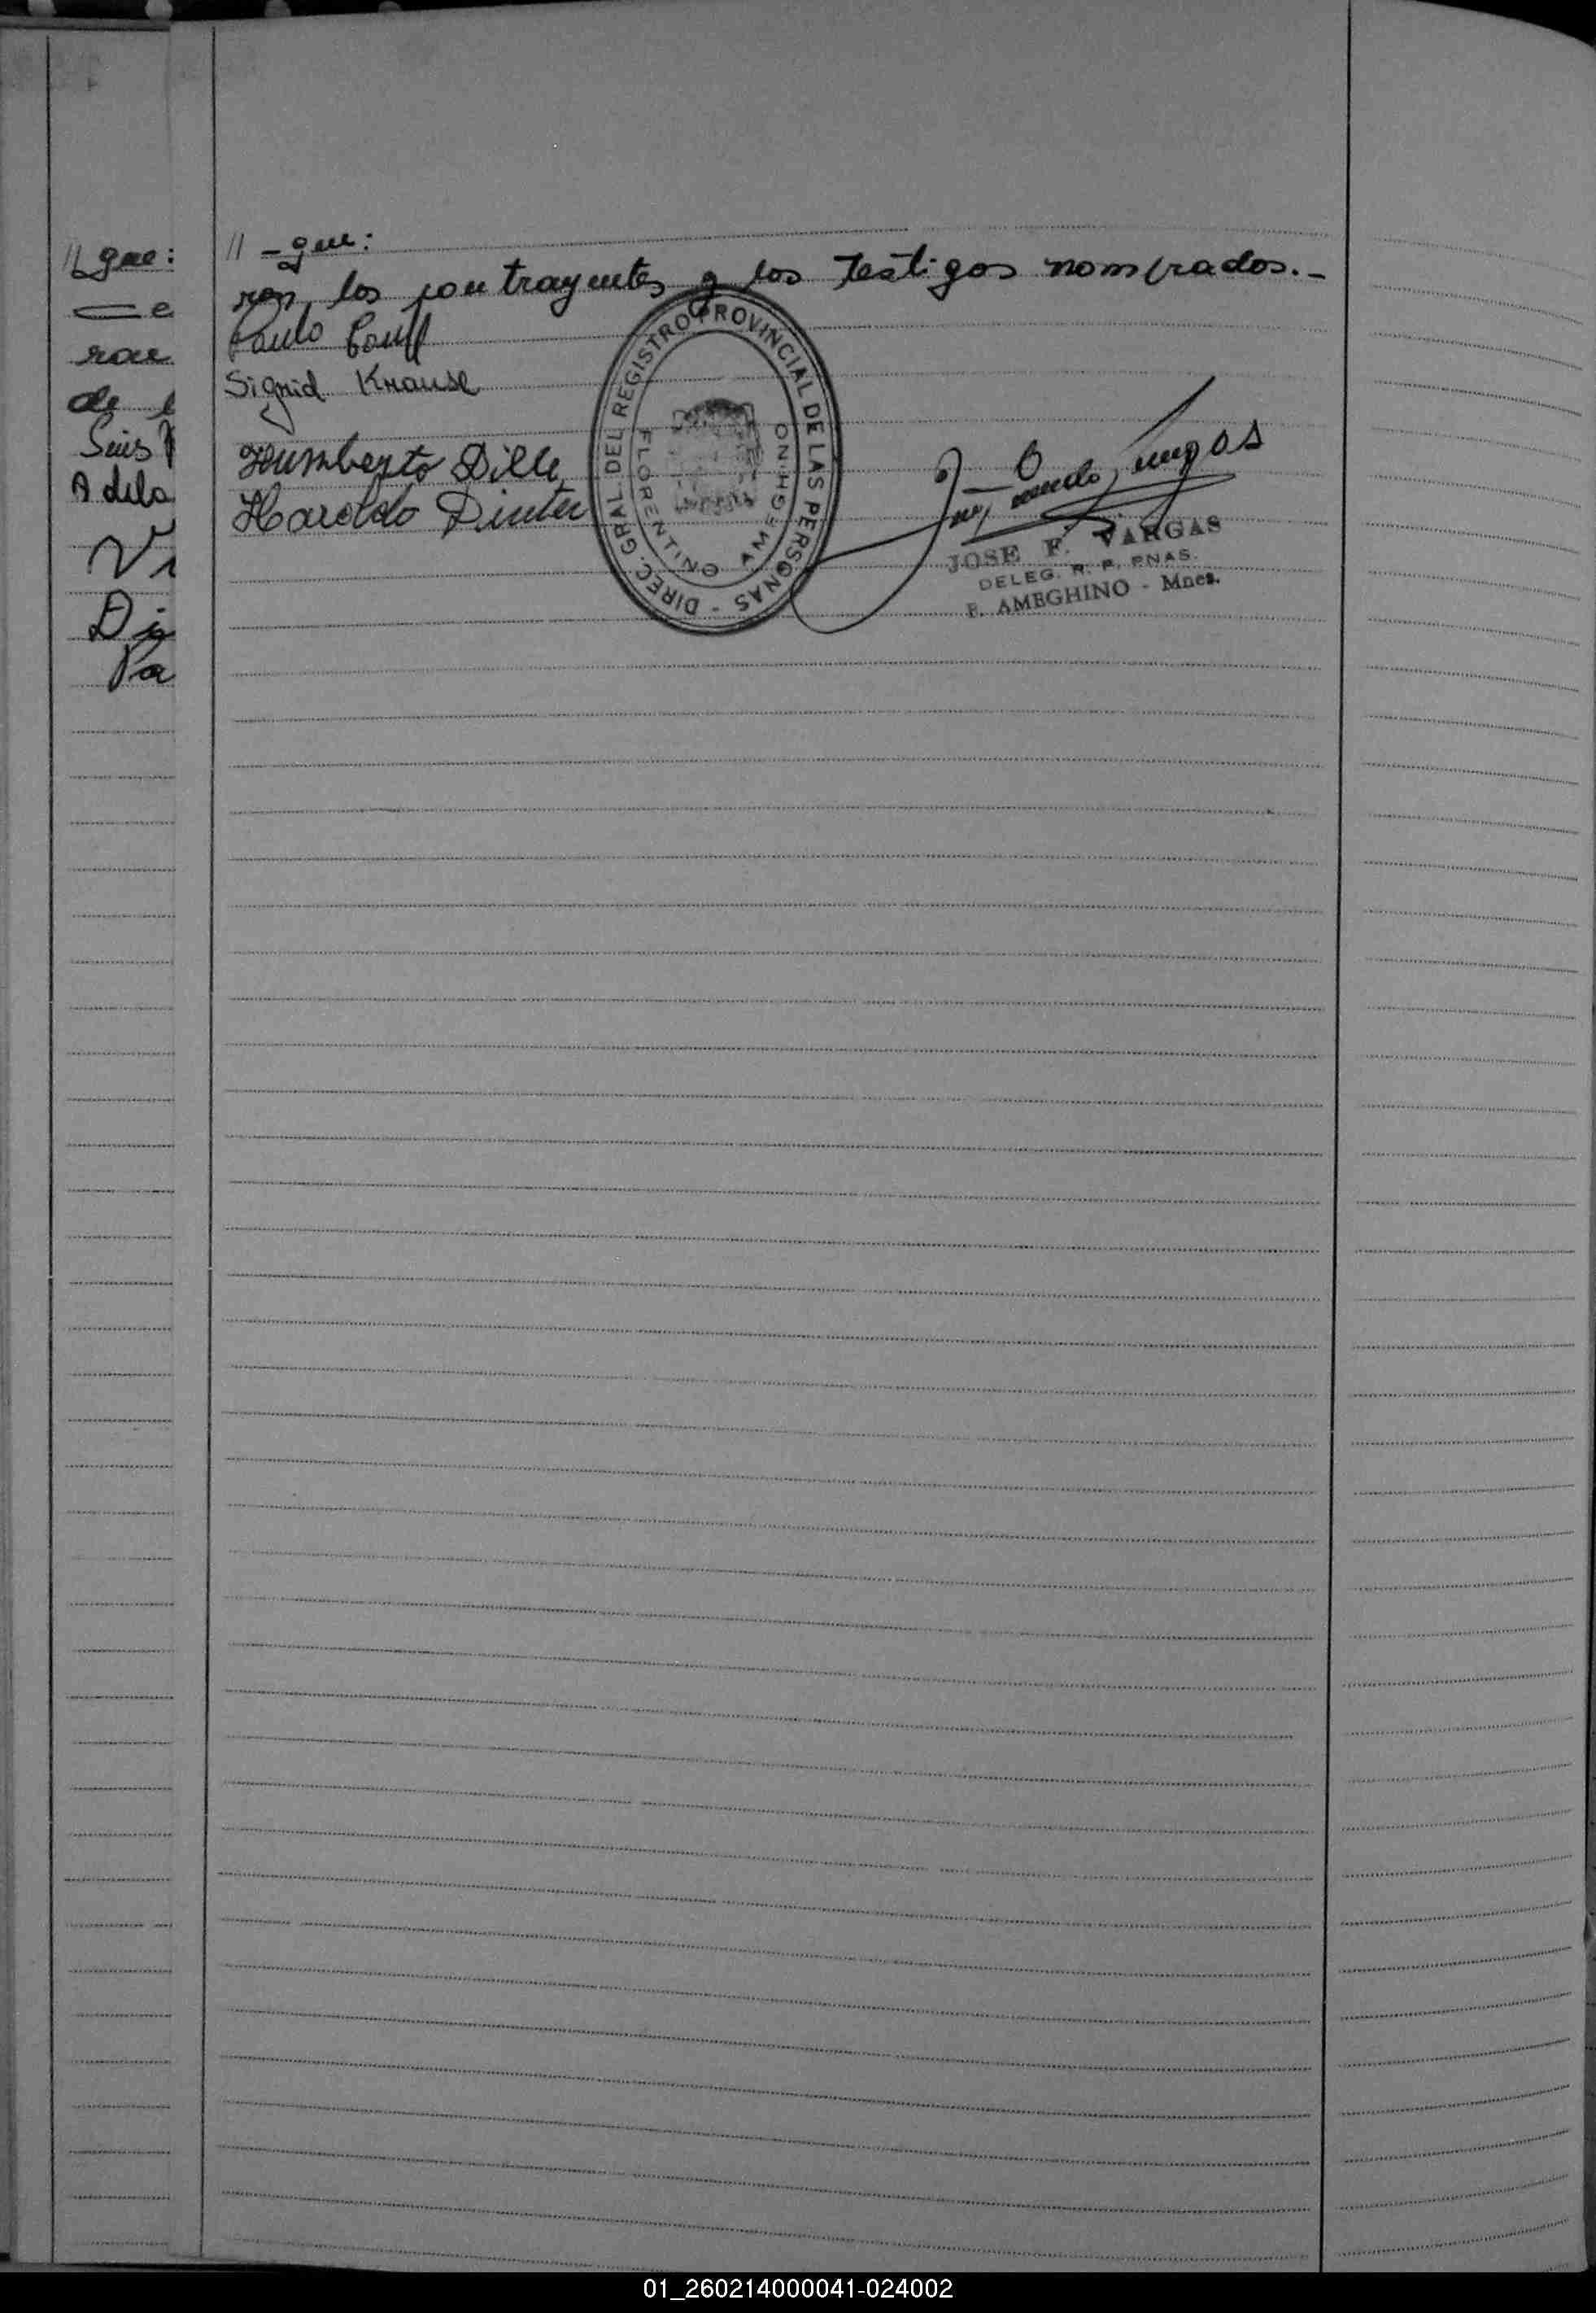 // gue:
= e
de
Luis
Adela
Vi
Di
Pa
// - gue:
ron los contrayentes y los Testigos nombrados.-
Paulo
Sigrid Krause
Humberto Dille
Haroldo Dinter
DIREC. GRAL DEL REGISTRO PROVINCIAL DE LAS PERSONAS -
FLORENTINO AMEGHINO
JOSE F. VARGAS
DELEG. R. P. PNAS.
F. AMEGHINO - Mnes.
01_260214000041-024002